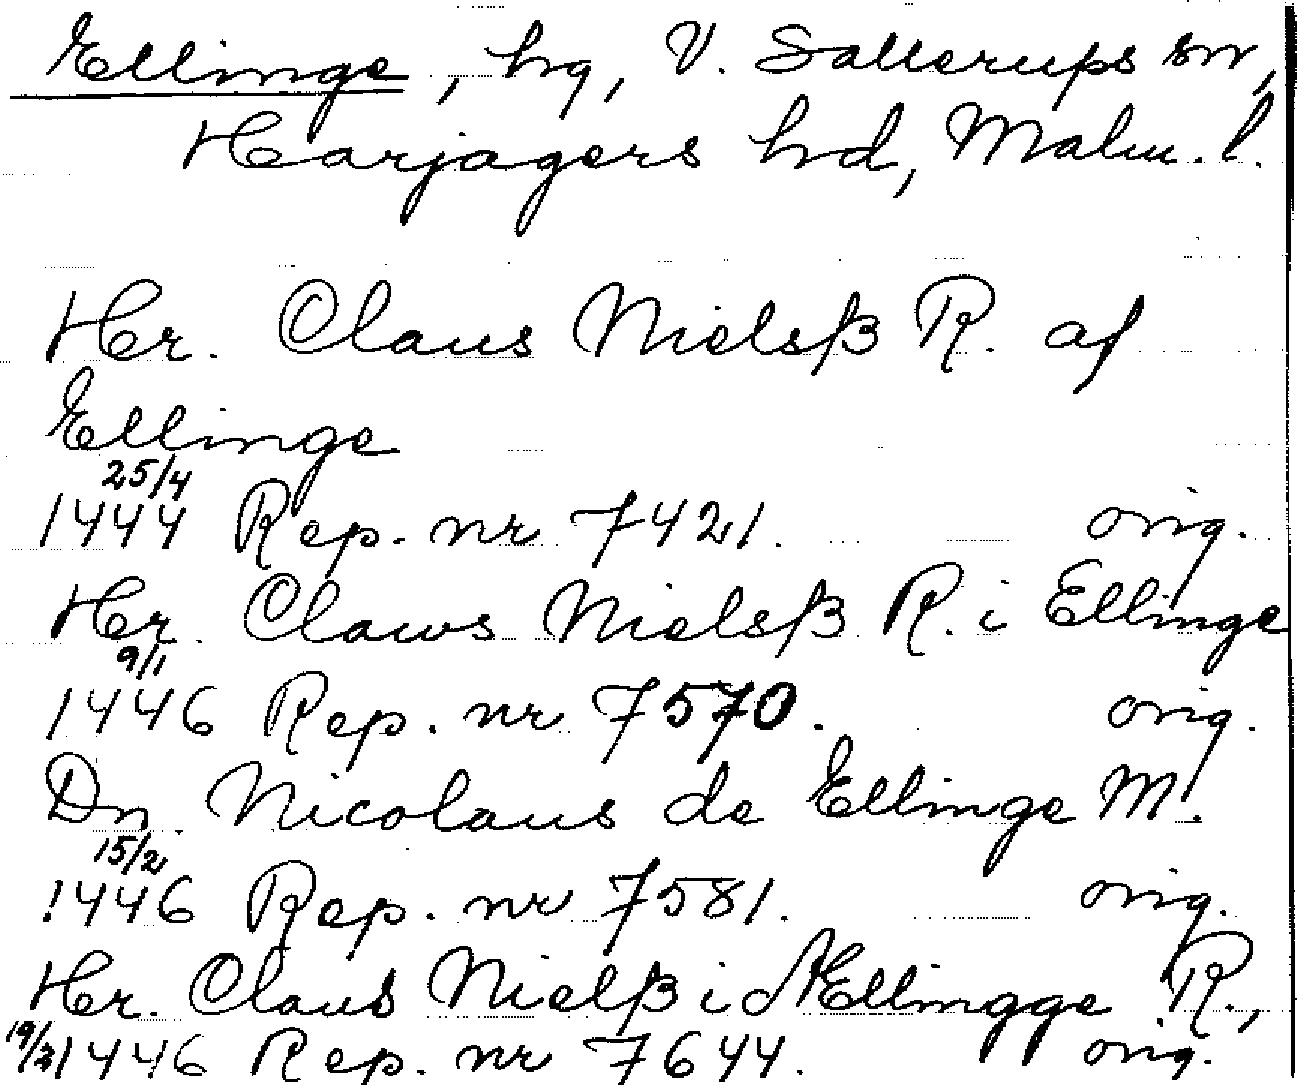 Ellinge, hg, V. Sallerups sn,
Harjagers hd, Malm. l.
Her. Claus Nielsß R. af
Ellinge
25/4
1444 Rep. nr 7421. orig.
Her. Claws Nielsß R. i Ellinge
9/1
1446 Rep. nr 7570. orig.
Dn. Nicolaus de Ellinge M.
15/2
1446 Rep. nr 7581. orig.
Her. Claus Nielß i Ællingge R.,
1446 Rep. nr 7644. orig.